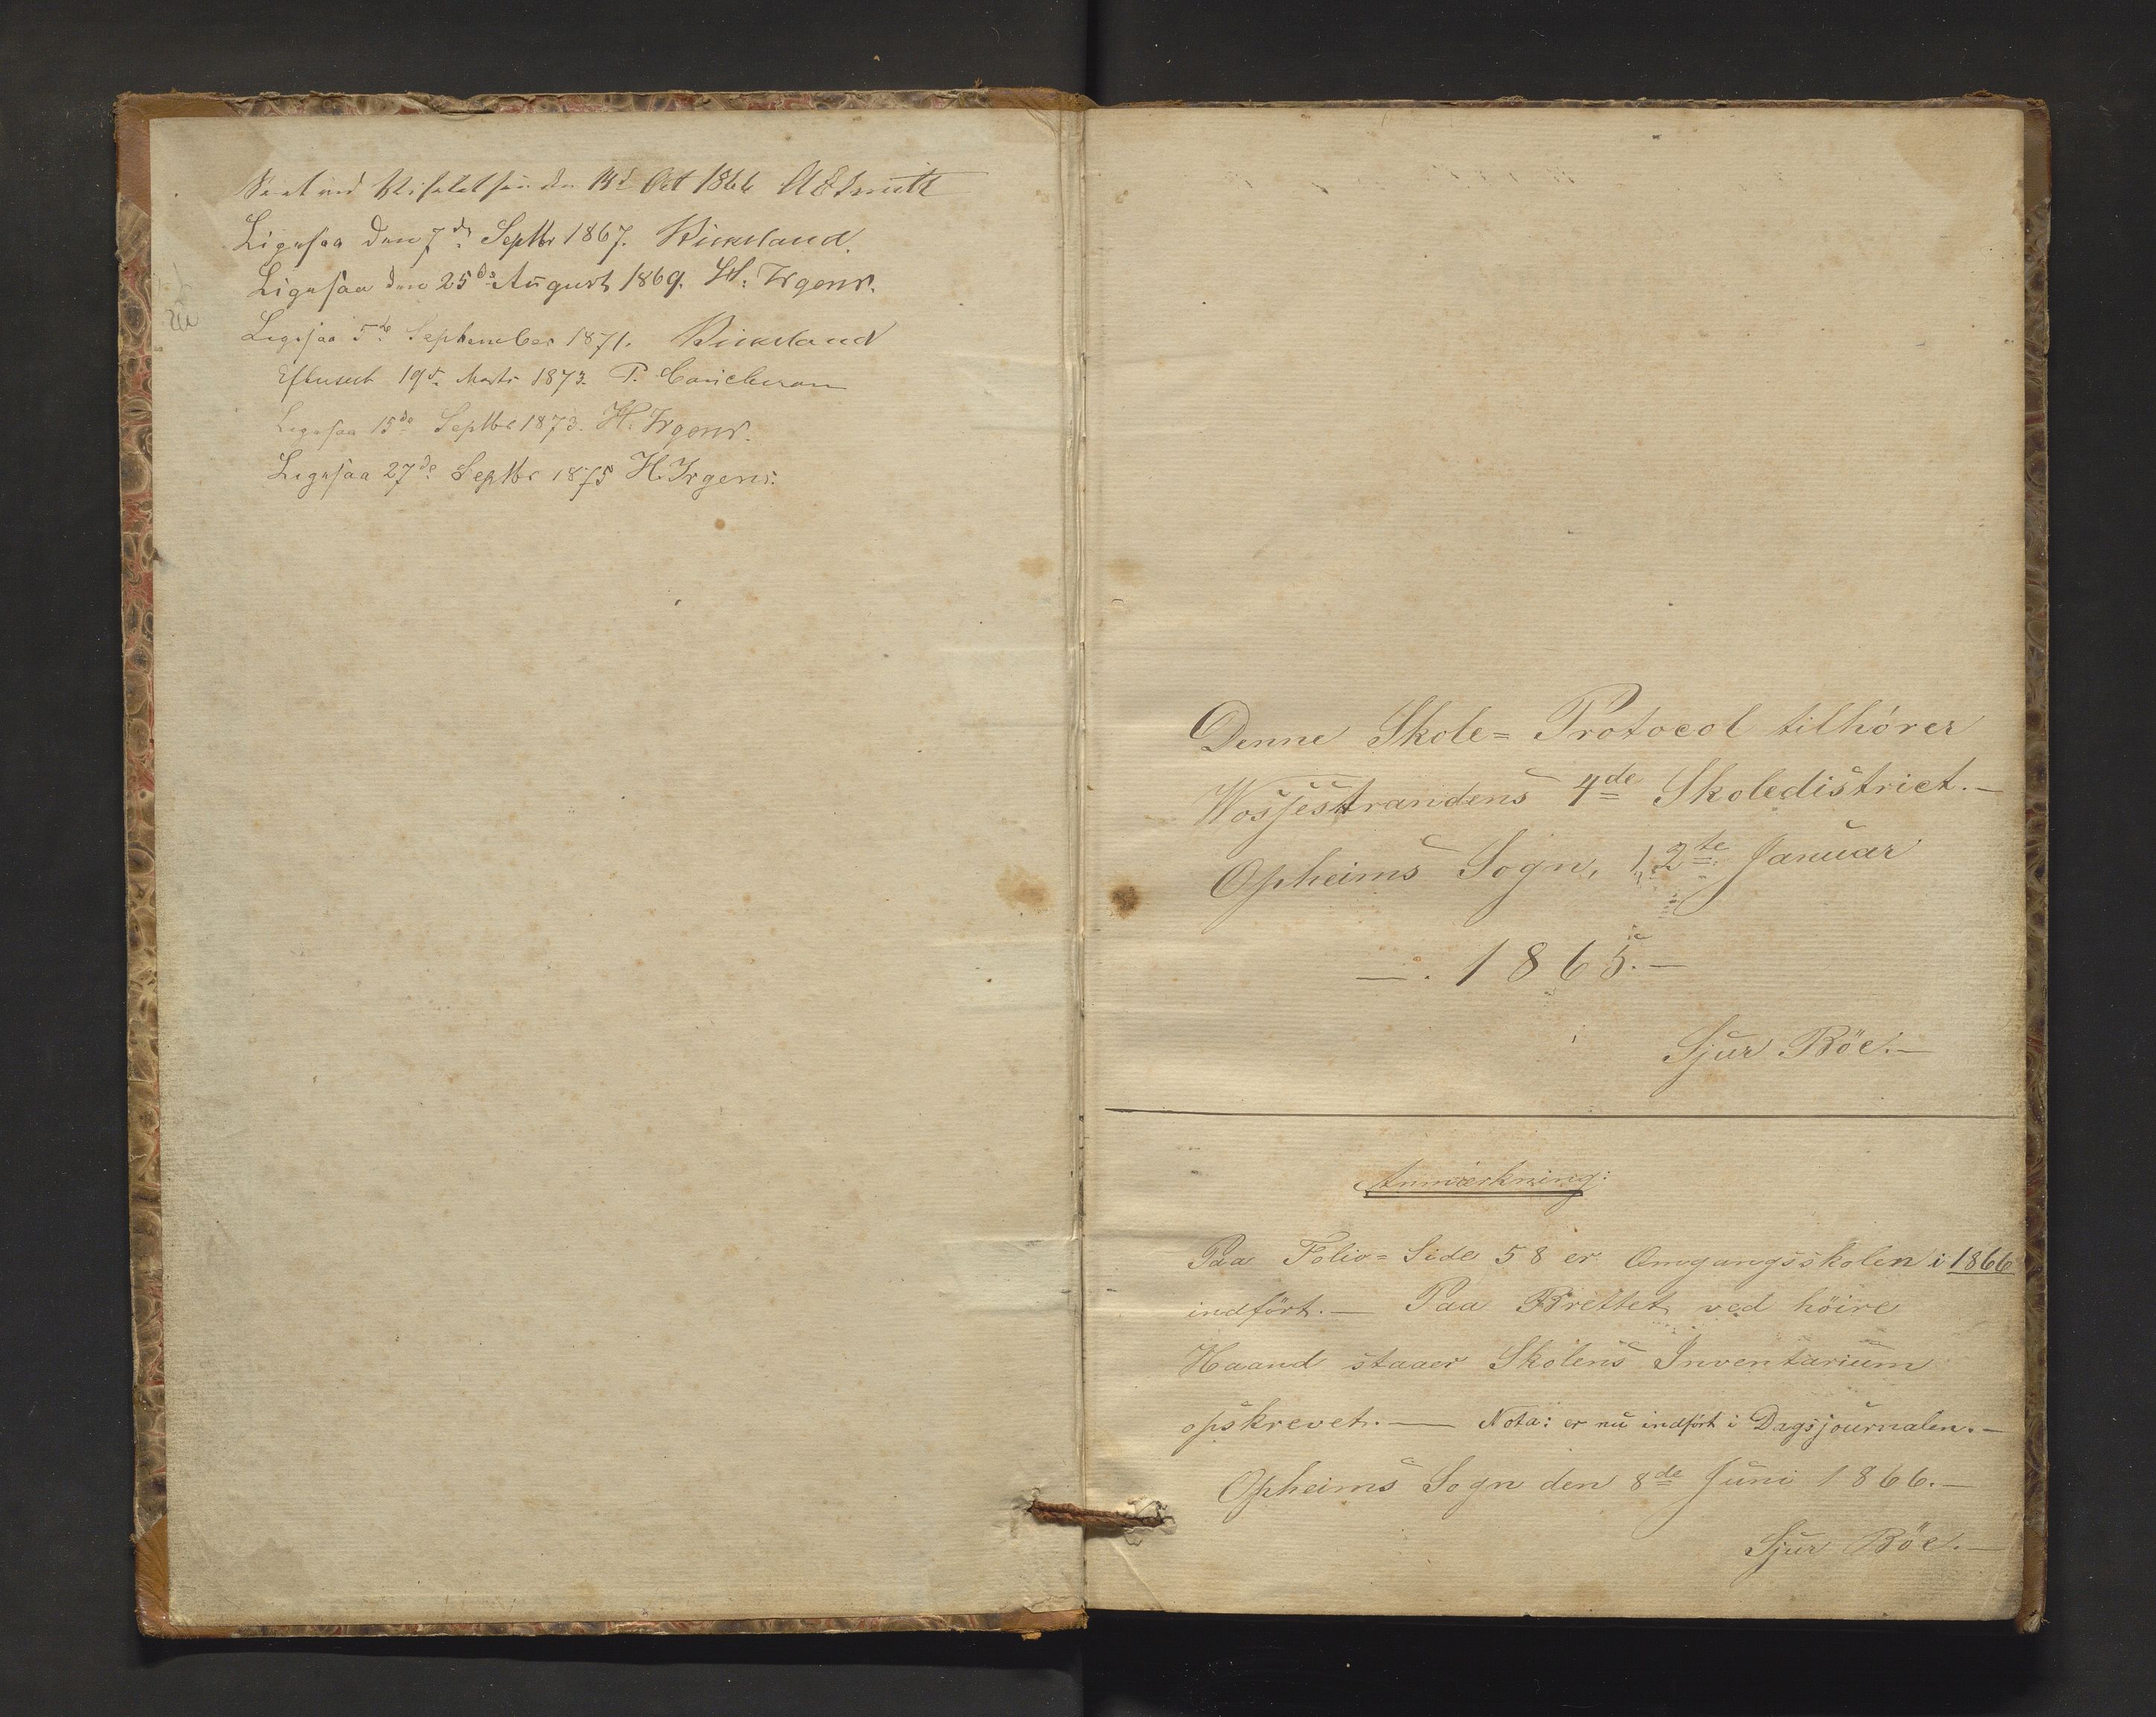 den 14d Oct 1866
Ligesaa den 7de Septbr 1867. Kirkeland.
Ligesaa den 25de August 1869. H. Irgens.
Ligesaa 5te September 1871. Kirkeland
Efterseet 19d. Marts 1873. P.
Ligesaa 15de Septbr 1873. H. Irgens.
Ligesaa 27de Septbr 1875 H. Irgens.
Denne Skole=Protocol tilhörer
Wossestrandens 4de Skoledistrict.—
Opheims Sogn, 12te Januar
—. 1865.—
Sjur Böe.—
Anmærkning:
Paa Folio=Side 58 er Omgangsskolen i 1866
indfört.— Paa Brettet ved höire
Haand staaer Skolens Inventarium
opskrevet.— Nota: er nu indfört i Dagsjournalen.—
Opheims Sogn den 8de Juni 1866.—
Sjur Böe.—